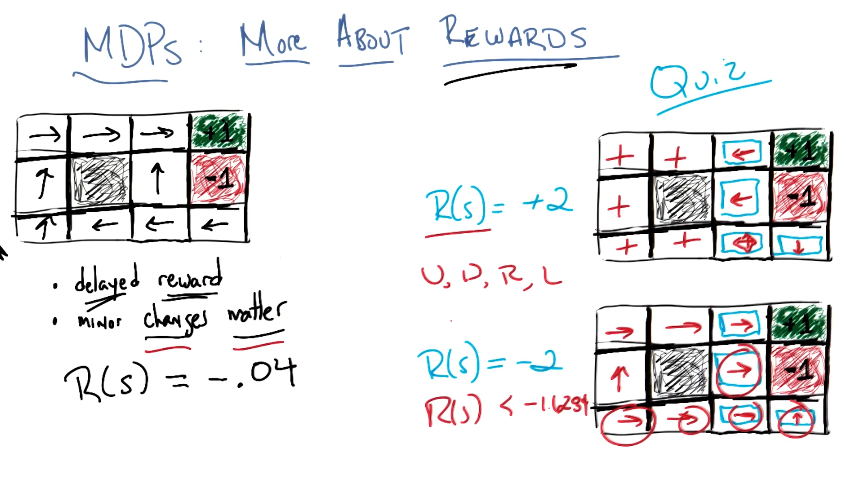 MDPs: More About Rewards
Quiz
→ → → +1
↑ ↑ -1
↑ ← ← ←
• delayed reward
• minor changes matter
R(s) = -.04
R(s) = +2
U, D, R, L
+ + ← +1
+ ← -1
+ + ↓
R(s) = -2
R(s) < -1.6284
→ → → +1
↑ → -1
→ → → ↑